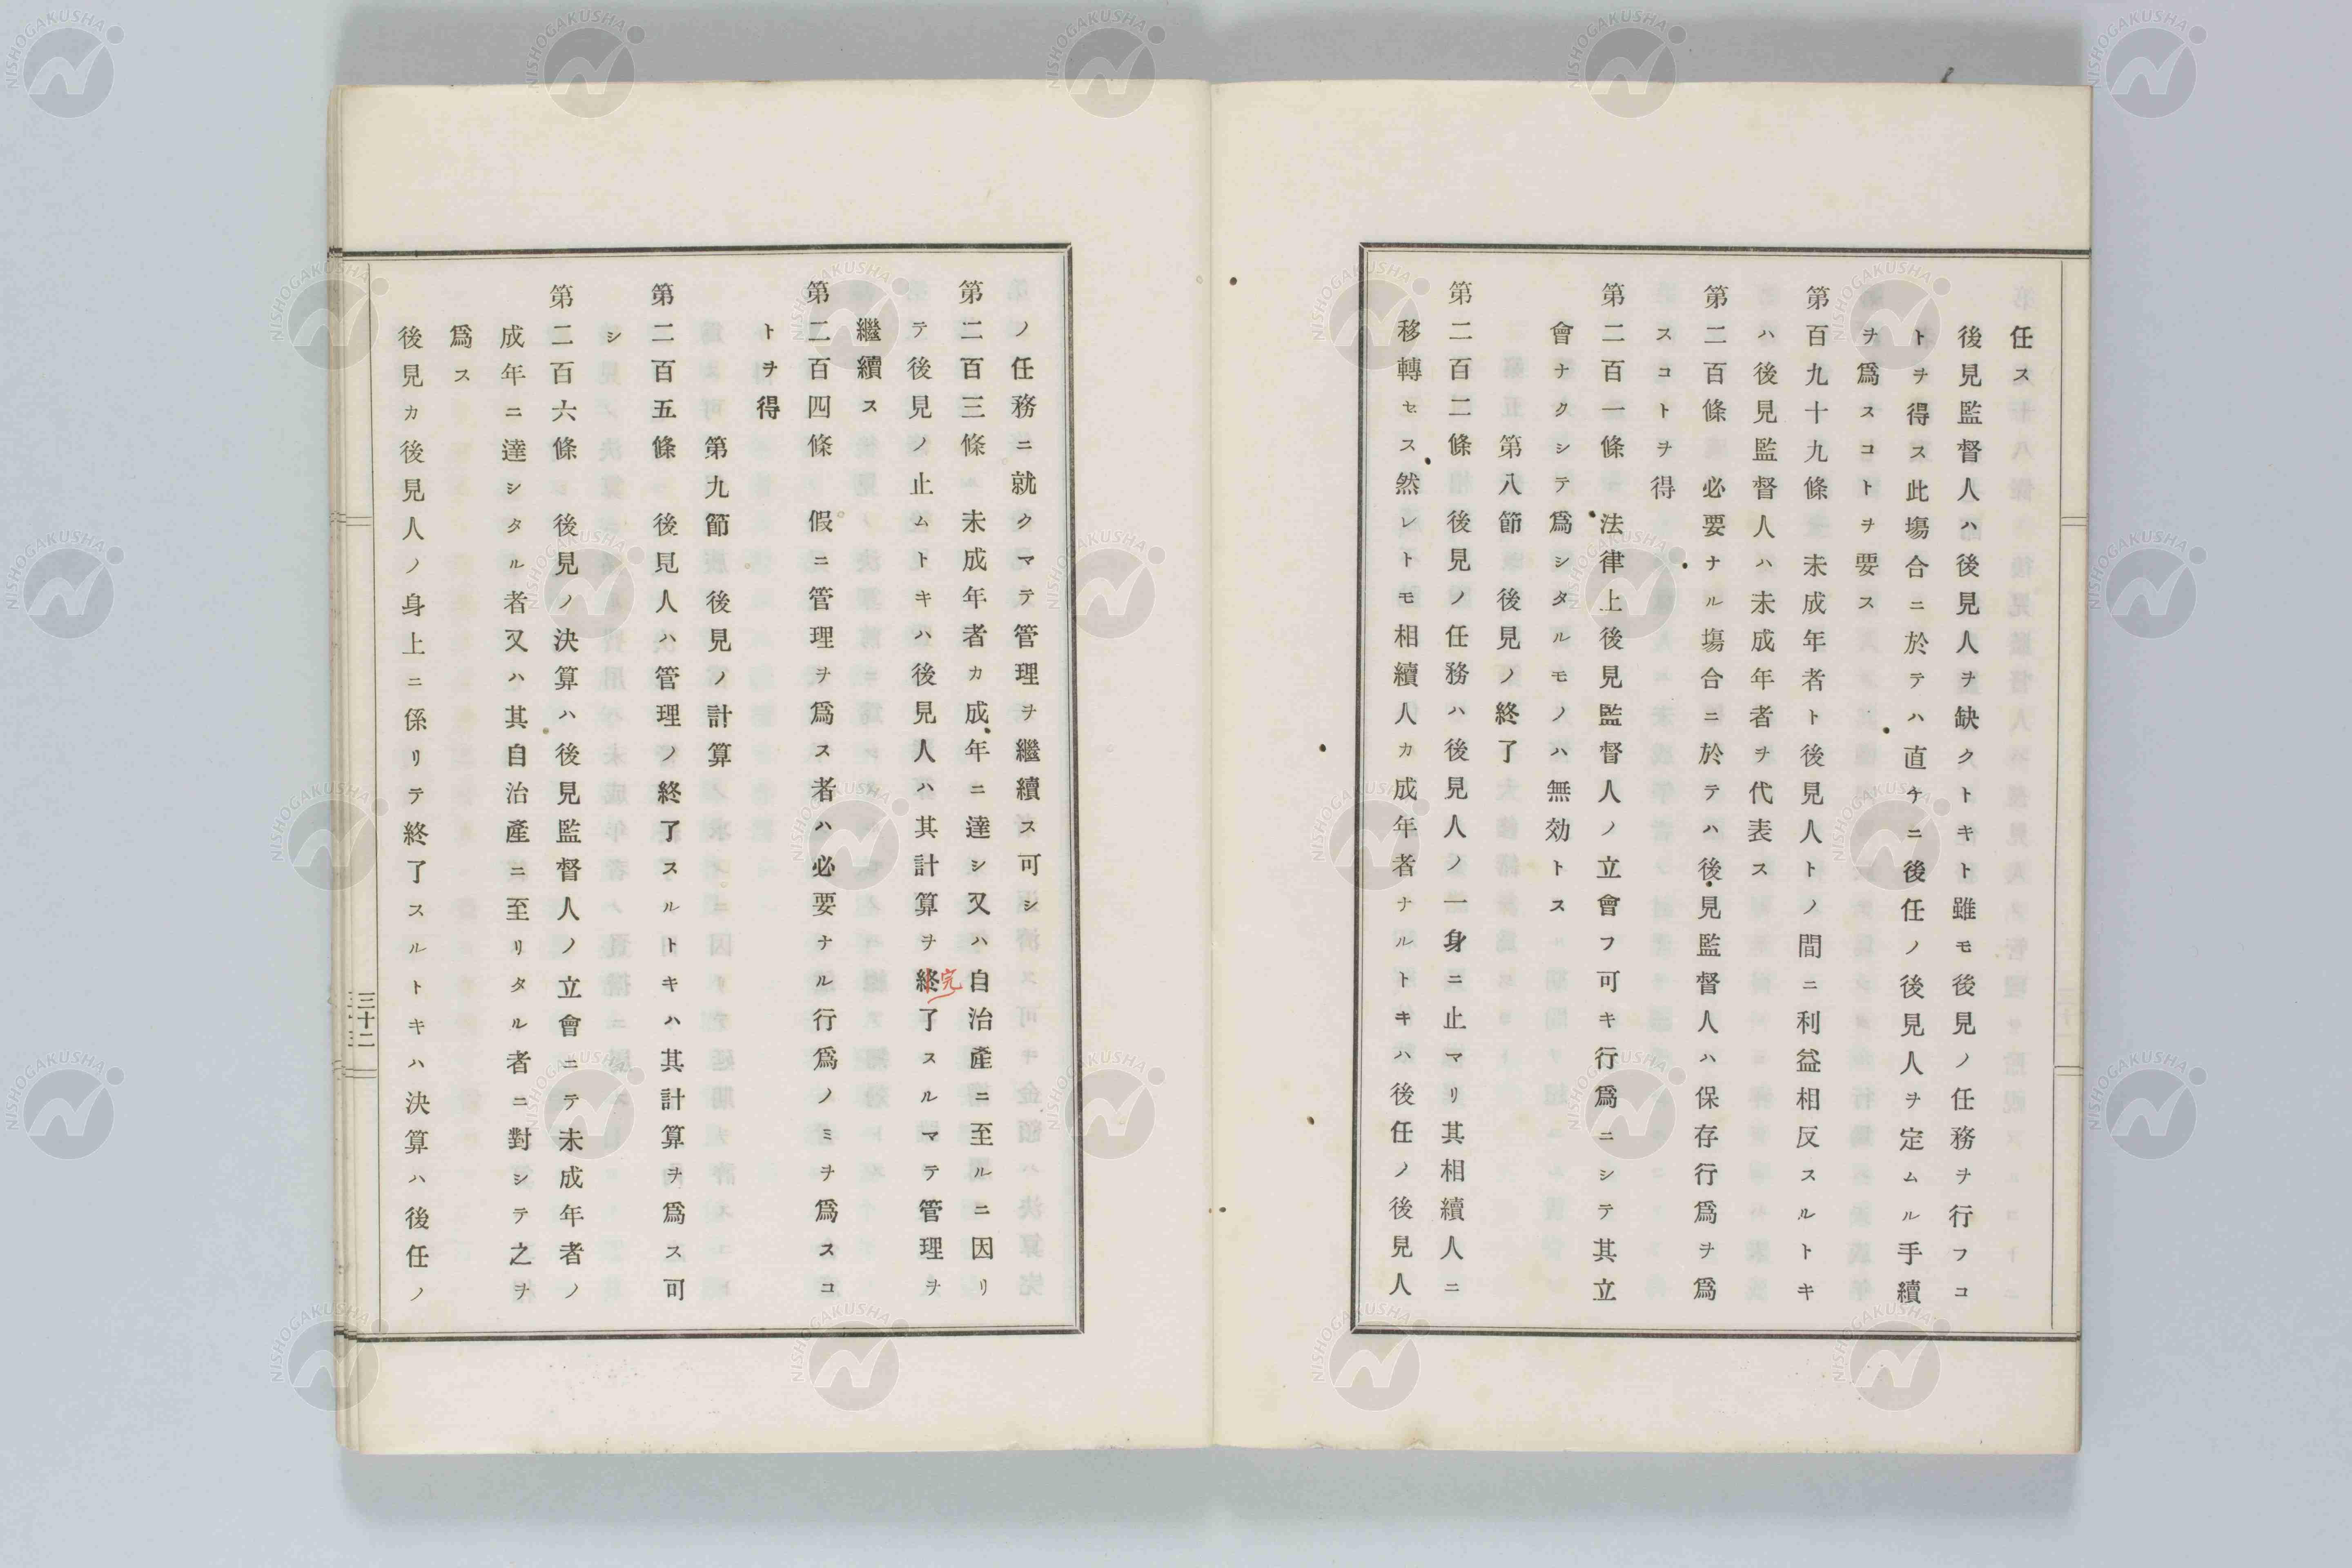 任ス
後見監督人ハ後見人ヲ缺クトキト雖モ後見ノ任務ヲ行フコ
トヲ得ス此塲合ニ於テハ直ケニ後任ノ後見人ヲ定ムル手續
ヲ爲スコトヲ要ス
第百九十九條 未成年者ト後見人トノ間ニ利益相反スルトキ
ハ後見監督人ハ未成年者ヲ代表ス
第二百條 必要ナル塲合ニ於テハ後見監督人ハ保存行爲ヲ爲
スコトヲ得
第二百一條 法律上後見監督人ノ立會フ可キ行爲ニシテ其立
會ナクシテ爲シタルモノハ無効トス
第八節 後見ノ終了
第二百二條 後見ノ任務ハ後見人ノ一身ニ止マリ其相續人ニ
移轉セス然レトモ相續人カ成年者ナルトキハ後任ノ後見人
ノ任務ニ就クマテ管理ヲ繼續ス可シ
第二百三條 未成年者カ成年ニ達シ又ハ自治產ニ至ルニ因リ
テ後見ノ止ムトキハ後見人ハ其計算ヲ終了スルマテ管理ヲ
完
繼續ス
第二百四條 假ニ管理ヲ爲ス者ハ必要ナル行爲ノミヲ爲スコ
トヲ得
第九節 後見ノ計算
第二百五條 後見人ハ管理ノ終了スルトキハ其計算ヲ爲ス可
シ
第二百六條 後見ノ決算ハ後見監督人ノ立會ニテ未成年者ノ
成年ニ達シタル者又ハ其自治產ニ至リタル者ニ對シテ之ヲ
爲ス
後見カ後見人ノ身上ニ係リテ終了スルトキハ決算ハ後任ノ
三十二
NISHOGAKUSHA